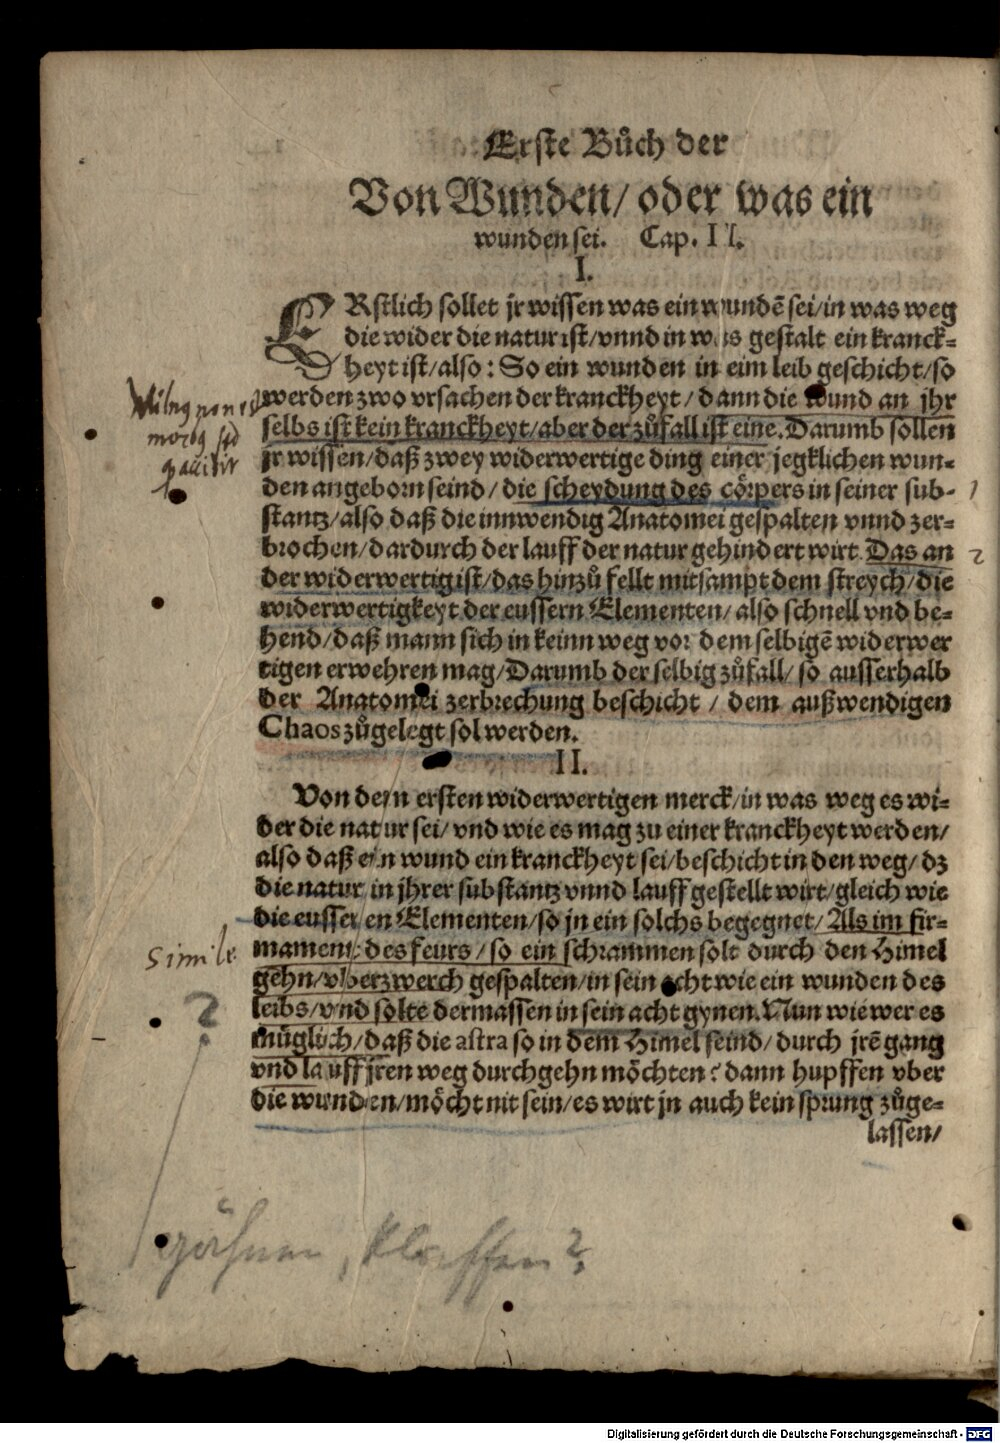 Erste Bůch der
Von Wunden/ oder was ein
wunden sei. Cap. II.
I.
ERstlich sollet jr wissen was ein wundẽ sei/in was weg
die wider die natur ist/vnnd in was gestalt ein kranck-
heyt ist/also: So ein wunden in eim leib geschicht/so
werden zwo vrsachen der kranckheyt/dann die wund an jhr
selbs ist kein kranckheyt/aber der zůfall ist eine. Darumb sollen
morbq sed
jr wissen/daß zwey widerwertige ding einer jegklichen wun-
den angeborn seind/die scheydung des cörpers in seiner sub- 1
stantz/also daß die innwendig Anatomei gespalten vnnd zer-
brochen/dardurch der lauff der natur gehindert wirt. Das an 2
der widerwertig ist/das hinzů fellt mitsampt dem streych/die
widerwertigkeyt der eussern Elementen/also schnell vnd be-
hend/daß mann sich in keinn weg vor dem selbigẽ widerwer
tigen erwehren mag/Darumb der selbig zůfall/so ausserhalb
der Anatomei zerbrechung beschicht/dem außwendigen
Chaos zůgelegt sol werden.
II.
Von dem ersten widerwertigen merck/in was weg es wi-
der die natur sei/vnd wie es mag zu einer kranckheyt werden/
also daß ein wund ein kranckheyt sei/beschicht in den weg/dz
die natur in jhrer substantz vnnd lauff gestellt wirt/gleich wie
die eusseren Elementen/so jn ein solchs begegnet/Als im fir-
Simile
mament des feurs/so ein schrammen solt durch den Himel
gehn/vberzwerch gespalten/in sein acht wie ein wunden des
?
leibs/vnd solte dermassen in sein acht gynen. Nun wie wer es
müglich/daß die astra so in dem Himel seind/durch jrẽ gang
vnd lauff jren weg durchgehn möchten: dann hupffen vber
die wunden/möcht nit sein/es wirt jn auch kein sprung zůge-
lassen/
gähnen, klaffen?
Digitalisierung gefördert durch die Deutsche Forschungsgemeinschaft - DFG